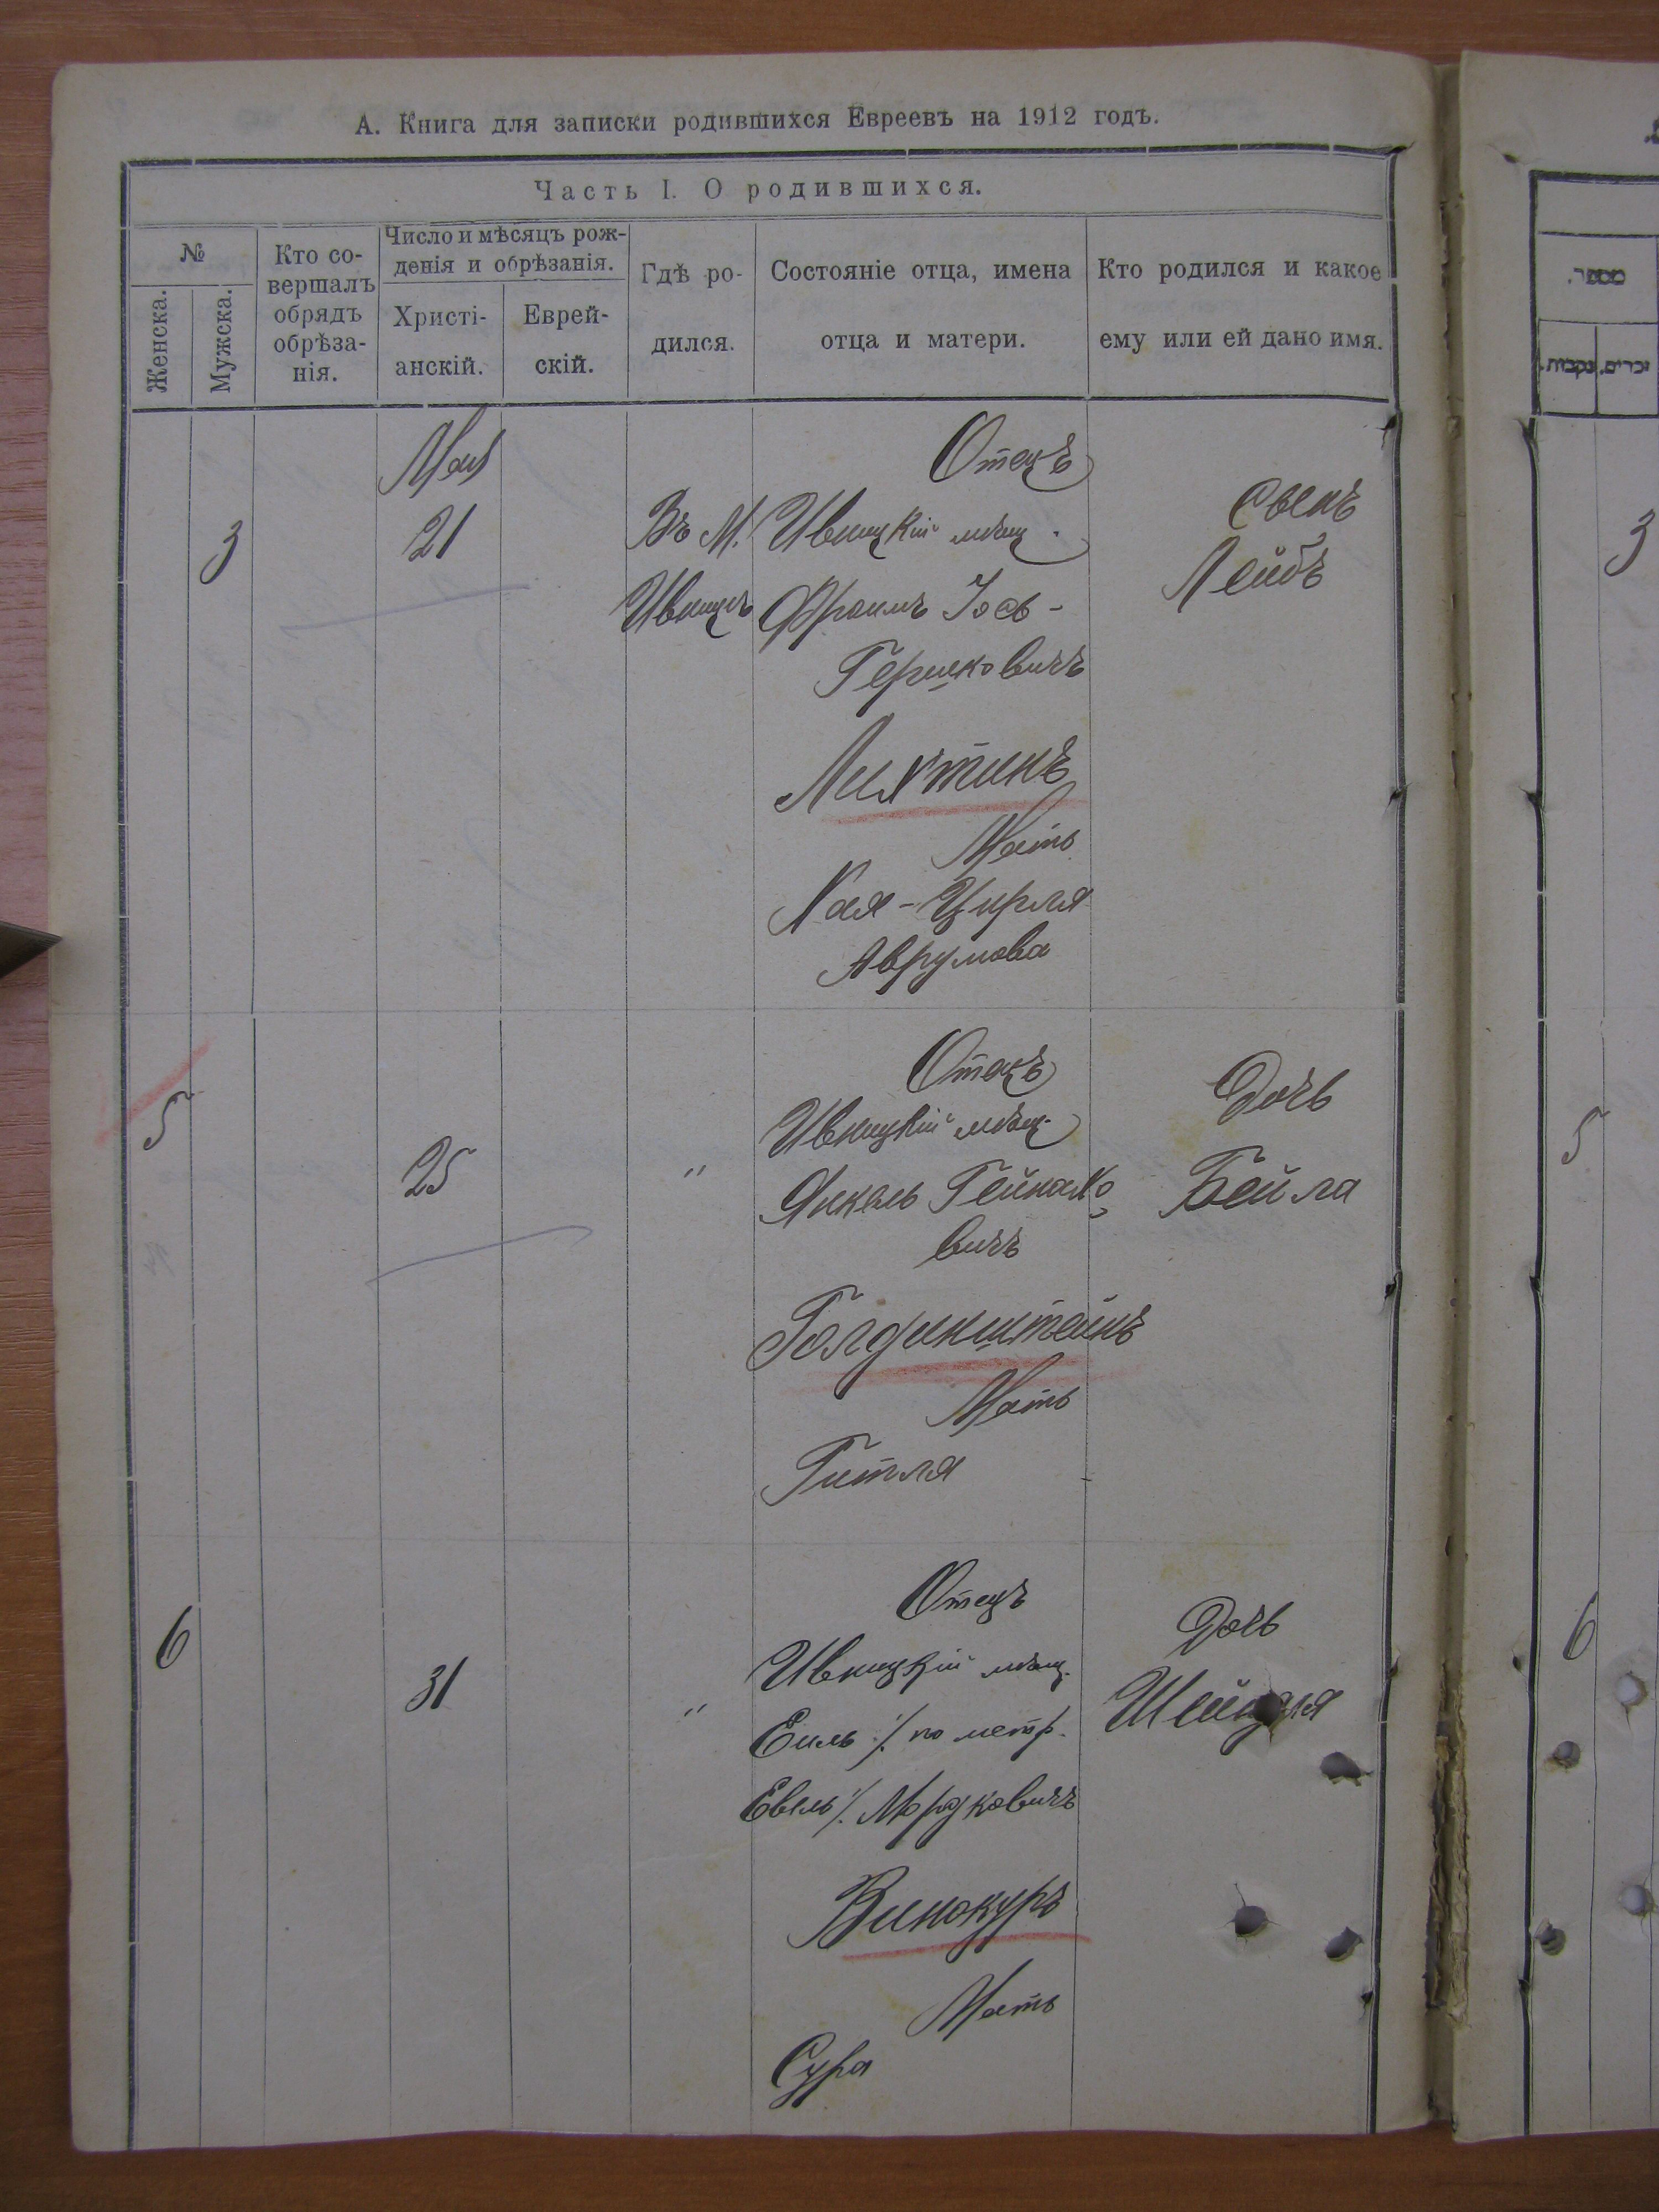 А. Книга для записки родившихся Евреевъ на 1912 годъ.
Часть I. О родившихся.
№
Женска.
Мужска.
Кто со-
вершалъ
обрядъ
обрѣза-
нія.
Число и мѣсяцъ рож-
денія и обрѣзанія.
Христі-
анскій.
Еврей-
скій.
Гдѣ ро-
дился.
Состояніе отца, имена
отца и матери.
Кто родился и какое
ему или ей дано имя.
מספר.
נקבות.
זכרים.
3
Мая
21
Въ М.
Ивницѣ
Отецъ
Ивницкій мѣщ.
Фроимъ Іось-
Гершковичъ
Лихтинъ
Мать
Хая-Цирля
Аврумова
Сынъ
Лейбъ
3
5
25
"
Отецъ
Ивницкій мѣщ.
Янкель Гейнахо
вичъ
Голдинштейнъ
Мать
Гитля
Дочь
Бейла
5
6
31
"
Отецъ
Ивницкій мѣщ.
Еиль /. по метр.
Евель /. Мордковичъ
Винокуръ
Мать
Сура
Дочь
Шейндля
6